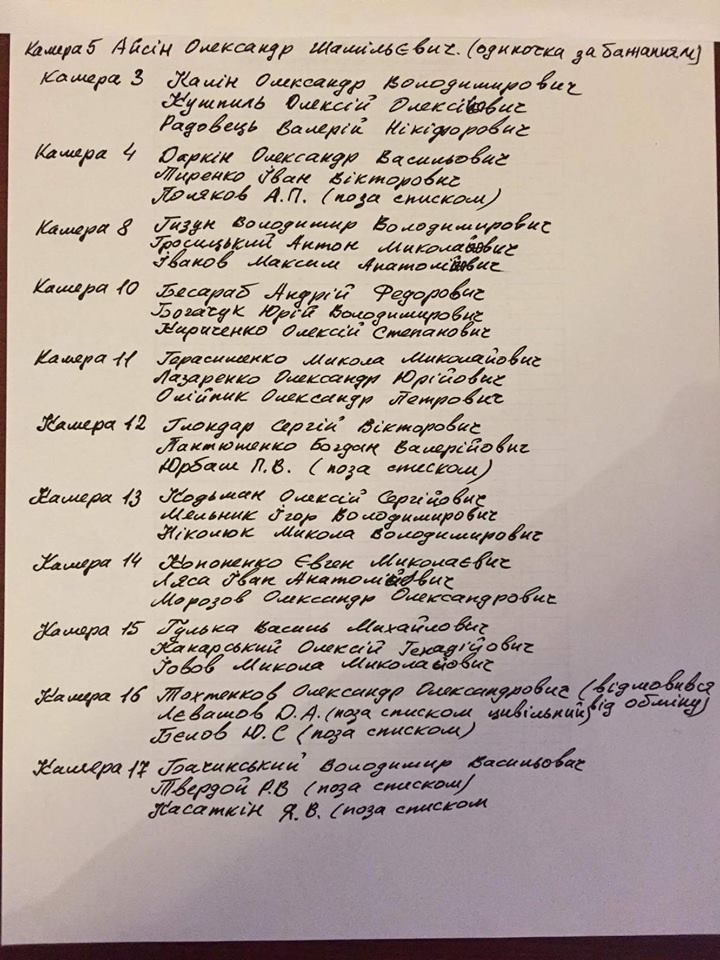 Камера 5 Айсін Олександр Шамільєвич. (одиночка за бажанням)
Камера 3 Калін Олександр Володимирович
Кушпиль Олексій Олексійович
Радовець Валерій Нікіфорович
Камера 4 Даркін Олександр Васильович
Тиренко Іван Вікторович
Поляков А.П. (поза списком)
Камера 8 Гизун Володимир Володимирович
Гросицький Антон Миколайович
Іванов Максим Анатолійович
Камера 10 Бесараб Андрій Федорович
Богачук Юрій Володимирович
Кириченко Олексій Степанович
Камера 11 Герасименко Микола Миколайович
Лазаренко Олександр Юрійович
Олійник Олександр Петрович
Камера 12 Глондар Сергій Вікторович
Пантюшенко Богдан Валерійович
Юрбаш П.В. (поза списком)
Камера 13 Кодьман Олексій Сергійович
Мельник Ігор Володимирович
Ніколюк Микола Володимирович
Камера 14 Кононенко Євген Миколаєвич
Ляса Іван Анатолійович
Морозов Олександр Олександрович
Камера 15 Гулька Василь Михайлович
Канарський Олексій Генадійович
Іовов Микола Миколайович
Камера 16 Тохтенков Олександр Олександрович (відмовився від обміну)
Лєвашов Ю.А. (поза списком цивільний)
Бєлов Ю.С (поза списком)
Камера 17 Бачинський Володимир Васильович
Твердой Р.В (поза списком)
Касаткін Я.В. (поза списком